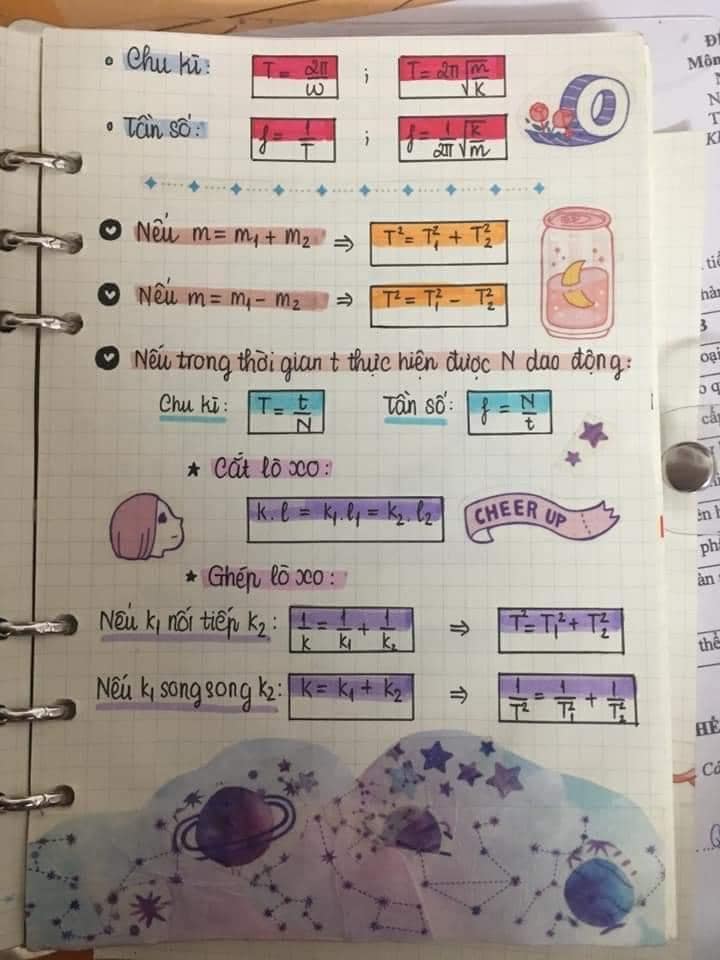 Chu kì: T = 2π/ω ; T = 2π√(m/k)
Tần số: f = 1/T ; f = 1/2π √(k/m)
Nếu m = m₁ + m₂ ⇒ T² = T₁² + T₂²
Nếu m = m₁ - m₂ ⇒ T² = T₁² - T₂²
Nếu trong thời gian t thực hiện được N dao động:
Chu kì: T = t/N Tần số: f = N/t
★ Cắt lò xo:
k.l = k₁.l₁ = k₂.l₂
CHEER UP
★ Ghép lò xo:
Nếu k₁ nối tiếp k₂: 1/k = 1/k₁ + 1/k₂ ⇒ T² = T₁² + T₂²
Nếu k₁ song song k₂: k = k₁ + k₂ ⇒ 1/T² = 1/T₁² + 1/T₂²
Môn